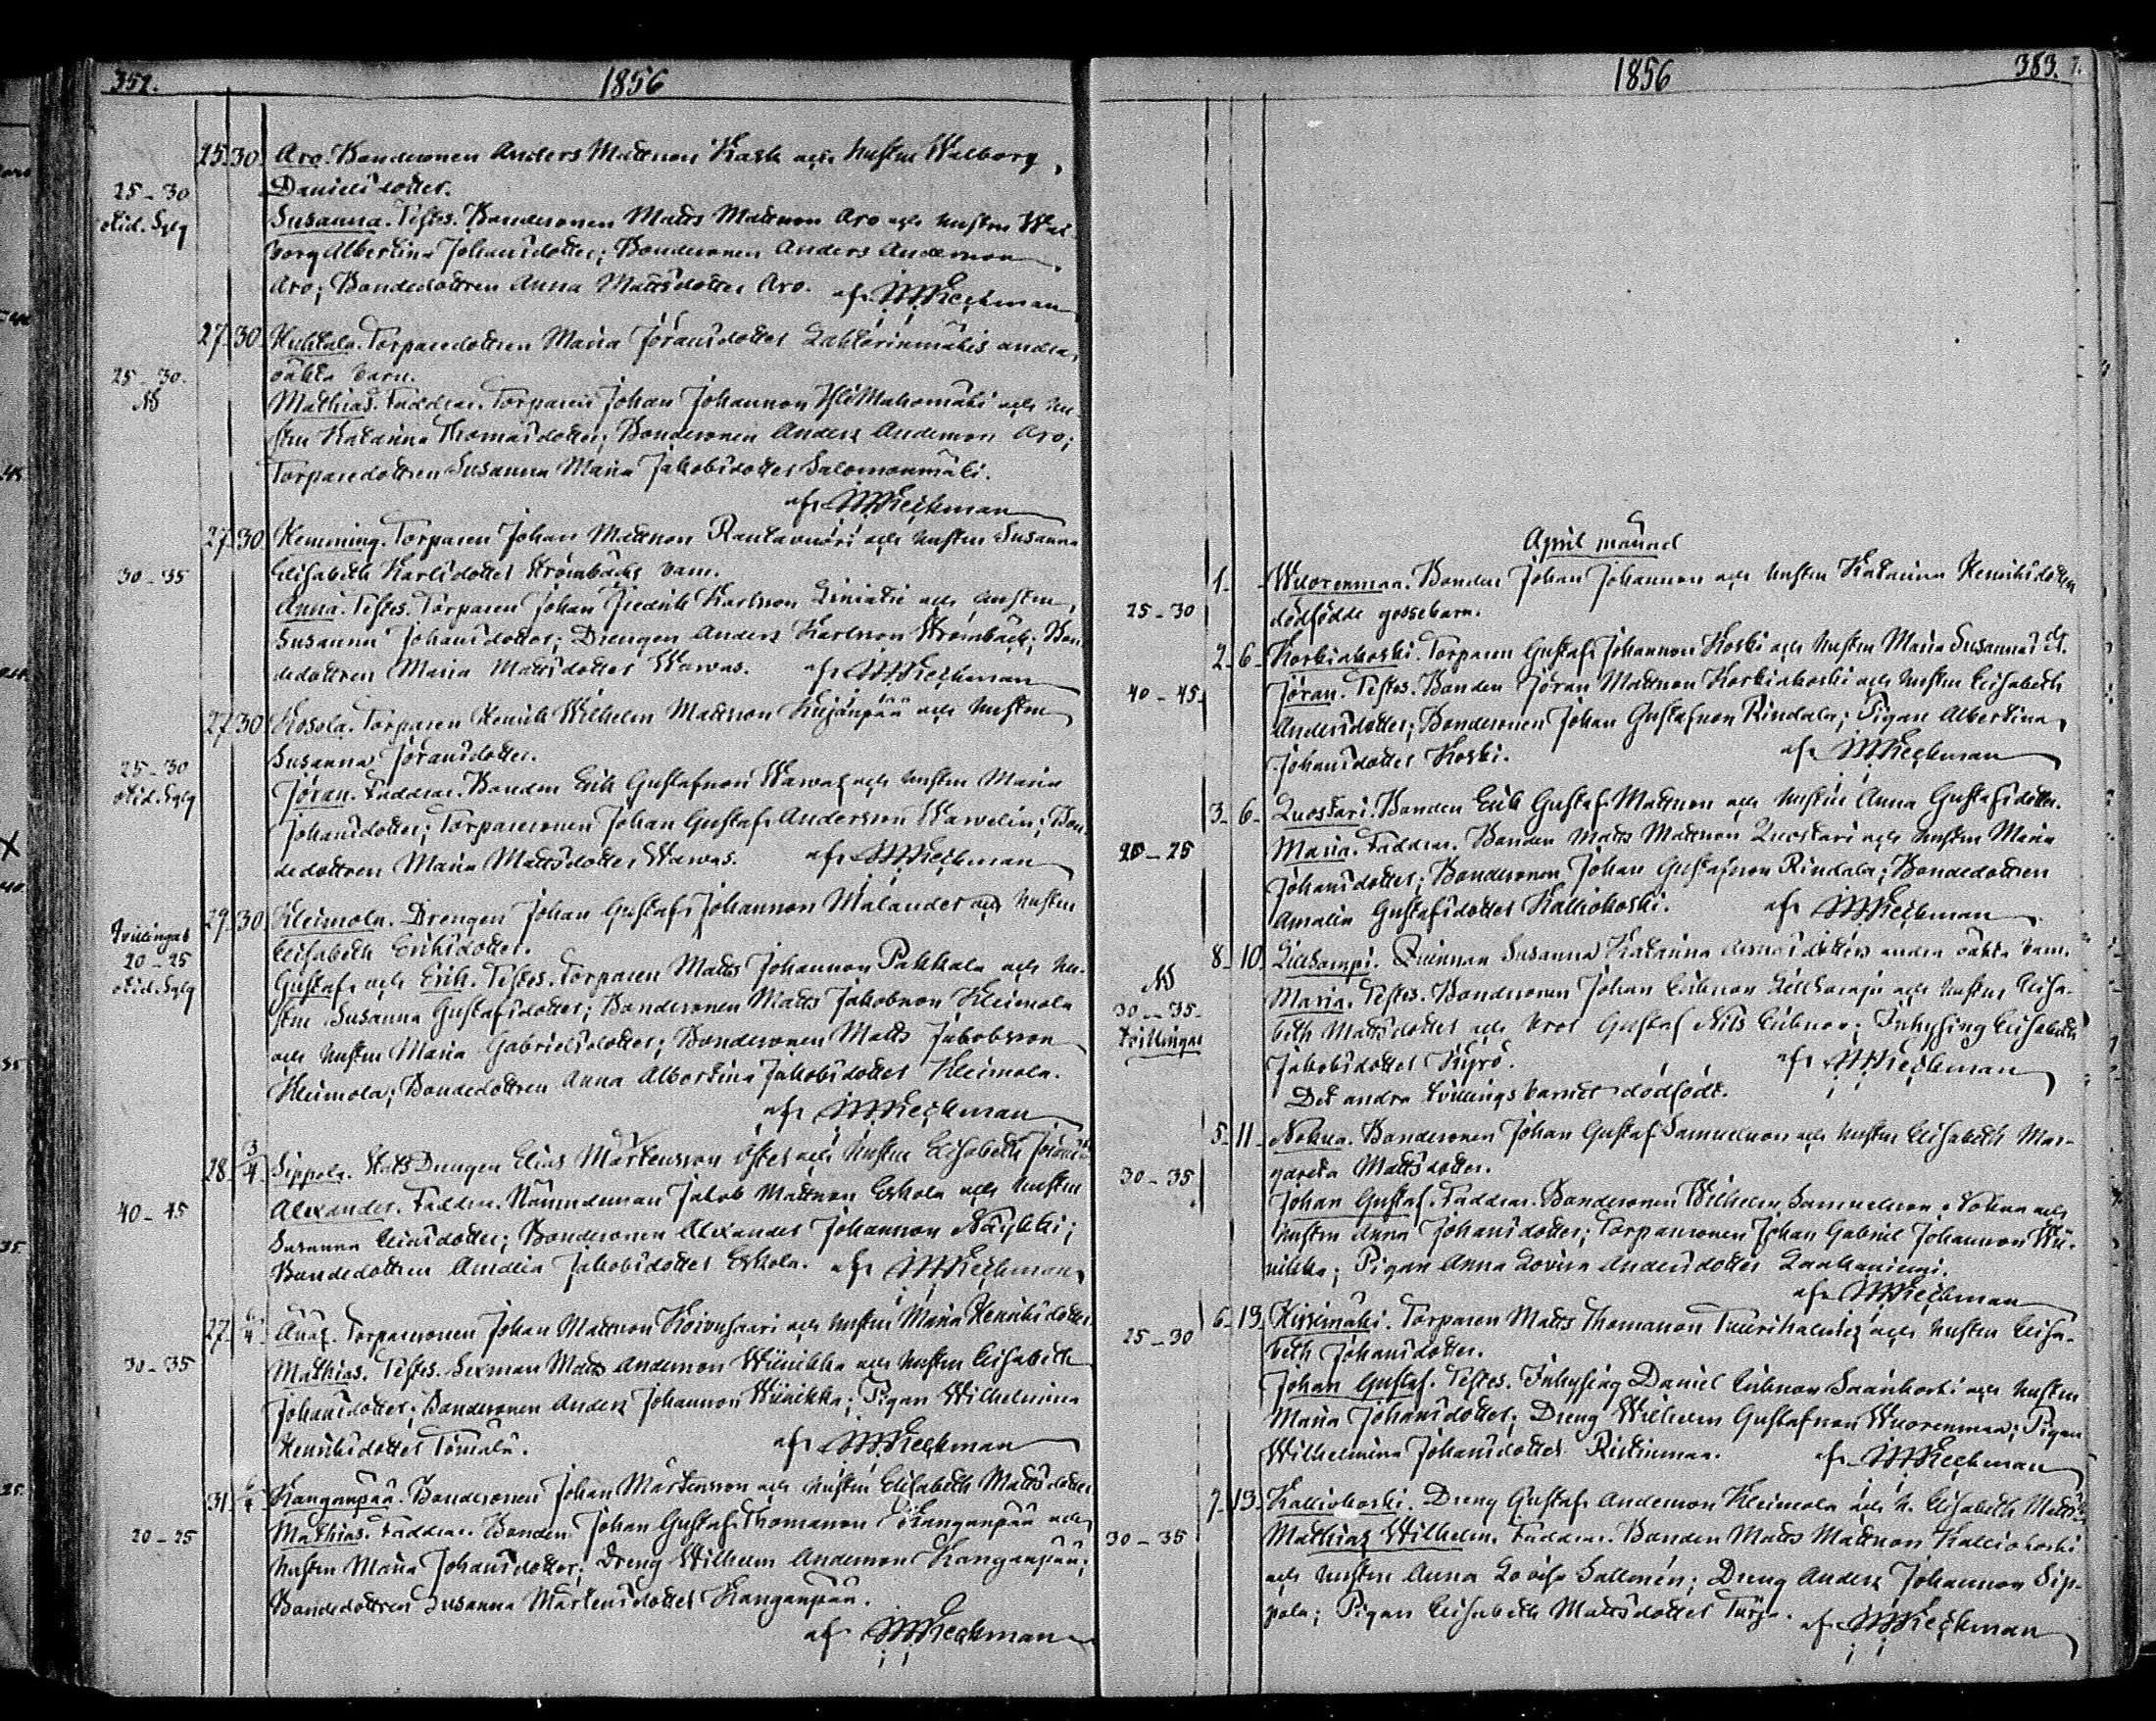 352.
1856
25. 30. Aro. Bondesonen Anders Mattsson Kask och hustru Walborg
25-30 Danielsdotter.
Susanna. Testes. Bondesonen Matts Mattsson Aro och hustru Wal-
borg Albertina Johansdotter; Bondesonen Anders Andersson
Aro; Bondedottren Anna Mattsdotter Aro. af
27. 30 Huhtala. Torparedottren Maria Jöransdotter andra
25-30. oäkta barn.
Mathias. Faddrar. Torparen Johan Johansson och hu-
stru Katarina Thomasdotter; Bondesonen Anders Andersson Aro;
Torparedottren Susanna Maria Jakobsdotter Salomonmäki.
af
27. 30 Hemming. Torparen Johan Mattsson Rantavuori och hustru Susanna
30-35 Elisabeth Karlsdotter Strömbäcks barn.
Anna. Testes. Torparen Johan Fredrik Karlsson och hustru
Susanna Johansdotter; Drengen Anders Karlsson Strömbäck; Bon-
dedottren Maria Mattsdotter Warvas. af
27. 30 Kosola. Torparen Henrik Wilhelm Mattsson Kujanpää och hustru
Susanna Jöransdotter.
25-30
Jöran. Faddrar. Bonden Erik Gustafsson Warvas och hustru Maria
Johansdotter; Torparesonen Johan Gustaf Andersson Warvelin; Bon-
dedottren Maria Mattsdotter Warvas. af
29. 30 Kleimola. Drengen Johan Gustaf Johansson Malander och hustru
Tvillingar
20-25 Elisabeth Eriksdotter.
Gustaf och Erik. Testes. Torparen Matts Johansson Pakkala och hu-
stru Susanna Gustafsdotter; Bondesonen Matts Jakobsson Kleimola
och hustru Maria Gabrielsdotter; Bondesonen Matts Jakobsson
Kleimola; Bondedottren Anna Albertina Jakobsdotter Kleimola.
af
28. 3/4 Sippola. Drengen Elias Mårtensson och hustru Elisabeth
40-45 Alexander. Faddrar. Nämndeman Jakob Mattsson Eskola och hustru
Susanna Eliasdotter; Bondesonen Alexander Johansson
Bondedottren Amalia Jakobsdotter Eskola. af
27. 6/4 Torparesonen Johan Mattsson Koivusaari och hustru Maria Henriksdotter
30-35 Mathias. Testes. Sexman Matts Andersson Wiinikka och hustru Elisabeth
Johansdotter; Bondesonen Anders Johansson Wiinikka; Pigan Wilhelmina
Henriksdotter Tomala. af
31. 6/4 Kanganpää. Bondesonen Johan Mårtensson och hustru Elisabeth Mattsdotter
20-25 Mathias. Faddrar. Bonden Johan Gustaf Thomasson Kanganpää och
hustru Maria Johansdotter; Dreng Wilhelm Andersson Kanganpää;
Bondedottren Susanna Mårtensdotter Kanganpää.
af
1856
383.
April månad
1. Wuorenmaa. Bonden Johan Johansson och hustru Katarina Henriksdotter
25-30 dödfödde gossebarn.
2. 6. Korkiakoski. Torparen Gustaf Johansson Koski och hustru Maria
40-45 Jöran. Testes. Bonden Jöran Mattsson Korkiakoski och hustru Elisabeth
Andersdotter; Bondesonen Johan Gustafsson Rindala; Pigan Albertina
Johansdotter Koski. af
3. 6. Luostari. Bonden Erik Gustaf Mattsson och hustru Anna Gustafsdotter.
20-25 Maria. Faddrar. Bonden Matts Mattsson Luostari och hustru Maria
Johansdotter; Bondesonen Johan Gustafsson Rindala; Bondedottren
Amalia Gustafsdotter Kalliokoski. af
8. 10. Qvinnan Susanna Katarina andra oäkta barn.
30-35. Maria. Testes. Bondesonen Johan Eriksson och hustru Elisa-
Tvillingar beth Mattsdotter och bror Gustaf Nils Eriksson; Inhysing Elisabeth
Jakobsdotter Kyrö. af
Det andra tvillingsbarnet dödfödt.
5. 11. Bondesonen Johan Gustaf Samuelsson och hustru Elisabeth Mar-
30-35 gareta Mattsdotter.
Johan Gustaf. Faddrar. Bondesonen Wilhelm Samuelsson och
hustru Anna Johansdotter; Torparesonen Johan Gabriel Johansson Wii-
nikka; Pigan Anna Lovisa Andersdotter
af
6. 13. Kissimäki. Torparen Matts Thomasson och hustru Elisa-
25-30 beth Johansdotter.
Johan Gustaf. Testes. Inhysing Daniel Eriksson Saarikoski och hustru
Maria Johansdotter; Dreng Wilhelm Gustafsson Wuorenmaa; Pigan
Wilhelmina Johansdotter Ristimaa. af
7. 13. Kalliokoski. Dreng Gustaf Andersson Kleimola och h. Elisabeth
30-35 Mathias Wilhelm. Faddrar. Bonden Matts Mattsson Kalliokoski
och hustru Anna Lovisa Sallmén; Dreng Anders Johansson Sip-
pola; Pigan Elisabeth Mattsdotter af